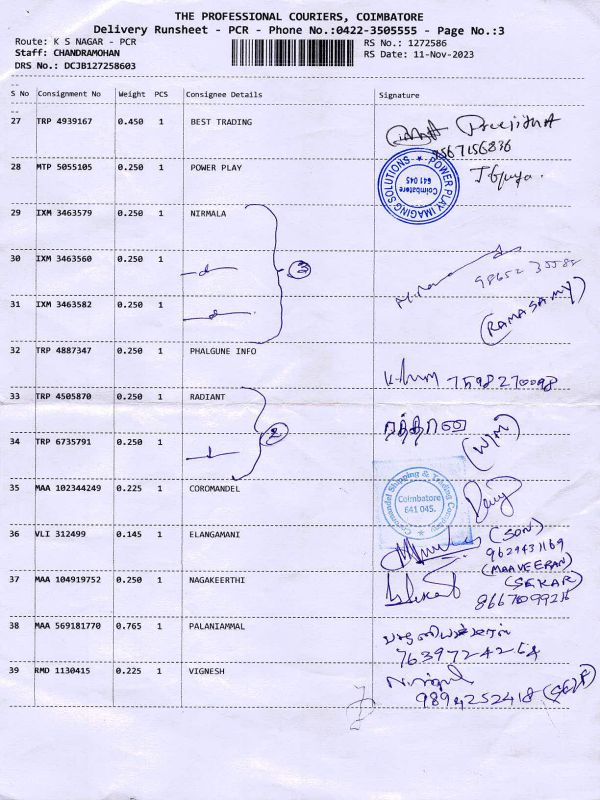 THE PROFESSIONAL COURIERS, COIMBATORE
Delivery Runsheet - PCR - Phone No.:0422-3505555 - Page No.:3
Route: K S NAGAR - PCR
RS No.: 1272586
Staff: CHANDRAMOHAN
RS Date: 11-Nov-2023
DRS No.: DCJB127258603
S No Consignment No Weight PCS Consignee Details Signature
27 TRP 4939167 0.450 1 BEST TRADING
9567156836
28 MTP 5055105 0.250 1 POWER PLAY
POWER PLAY IMAGING SOLUTIONS
Coimbatore
641 045
29 IXM 3463579 0.250 1 NIRMALA
30 IXM 3463560 0.250 1
3
(RAMASAMY)
31 IXM 3463582 0.250 1
32 TRP 4887347 0.250 1 PHALGUNE INFO
7598270098
33 TRP 4505870 0.250 1 RADIANT
2
34 TRP 6735791 0.250 1
(W/M)
35 MAA 102344249 0.225 1 COROMANDEL
Coromandel Shipping & Trading Company
Coimbatore
641 045.
36 VLI 312499 0.145 1 ELANGAMANI
(SON)
9629431169
(MAAVEERAN)
37 MAA 104919752 0.250 1 NAGAKEERTHI
(SEKAR)
38 MAA 569181770 0.765 1 PALANIAMMAL
39 RMD 1130415 0.225 1 VIGNESH
9894252418 (SELF)